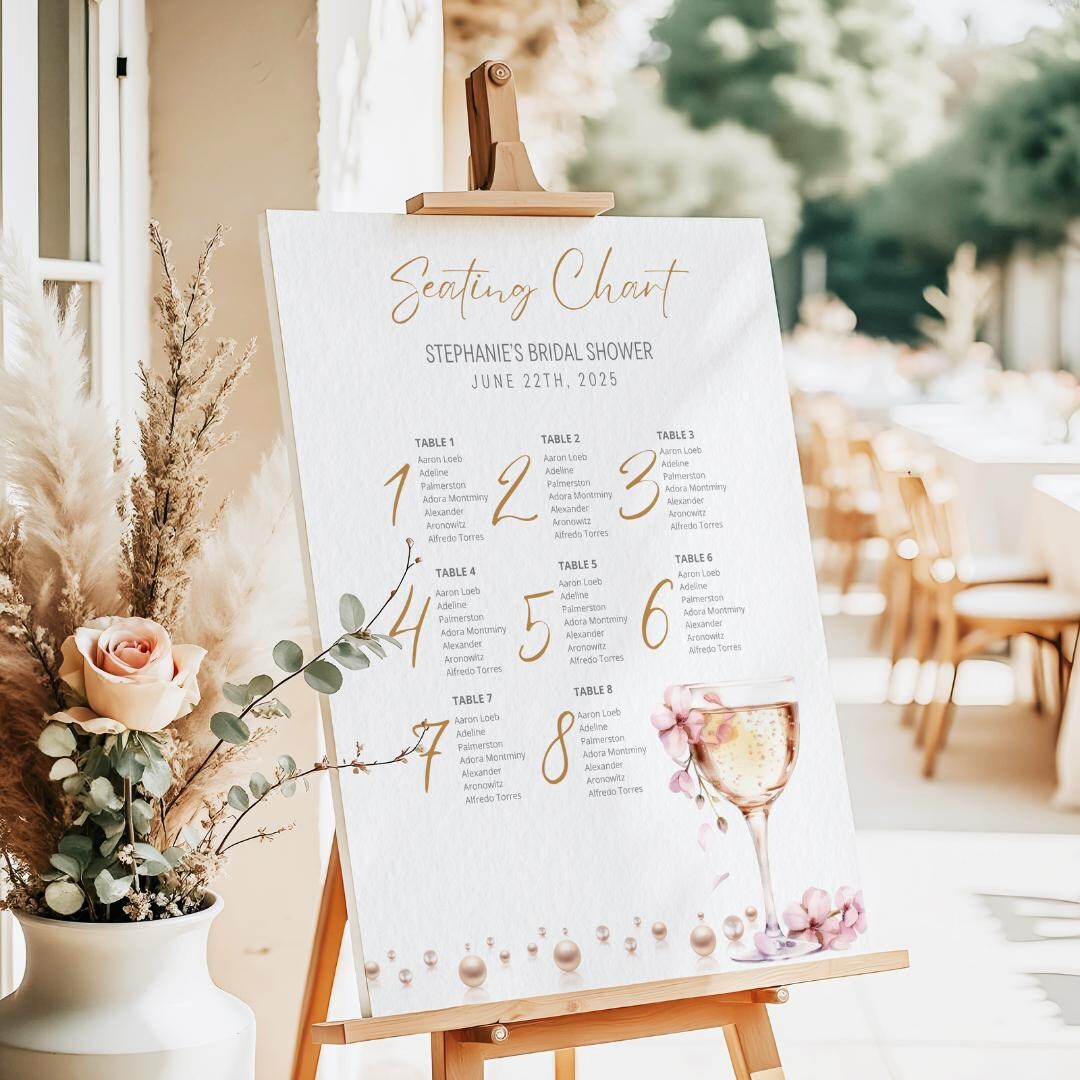 Seating Chart
STEPHANIE'S BRIDAL SHOWER
JUNE 22TH, 2025
TABLE 1
1
Aaron Loeb
Adeline
Palmerston
Adora Montminy
Alexander
Aronowitz
Alfredo Torres
TABLE 2
2
Aaron Loeb
Adeline
Palmerston
Adora Montminy
Alexander
Aronowitz
Alfredo Torres
TABLE 3
3
Aaron Loeb
Adeline
Palmerston
Adora Montminy
Alexander
Aronowitz
Alfredo Torres
TABLE 4
4
Aaron Loeb
Adeline
Palmerston
Adora Montminy
Alexander
Aronowitz
Alfredo Torres
TABLE 5
5
Aaron Loeb
Adeline
Palmerston
Adora Montminy
Alexander
Aronowitz
Alfredo Torres
TABLE 6
6
Aaron Loeb
Adeline
Palmerston
Adora Montminy
Alexander
Aronowitz
Alfredo Torres
TABLE 7
7
Aaron Loeb
Adeline
Palmerston
Adora Montminy
Alexander
Aronowitz
Alfredo Torres
TABLE 8
8
Aaron Loeb
Adeline
Palmerston
Adora Montminy
Alexander
Aronowitz
Alfredo Torres